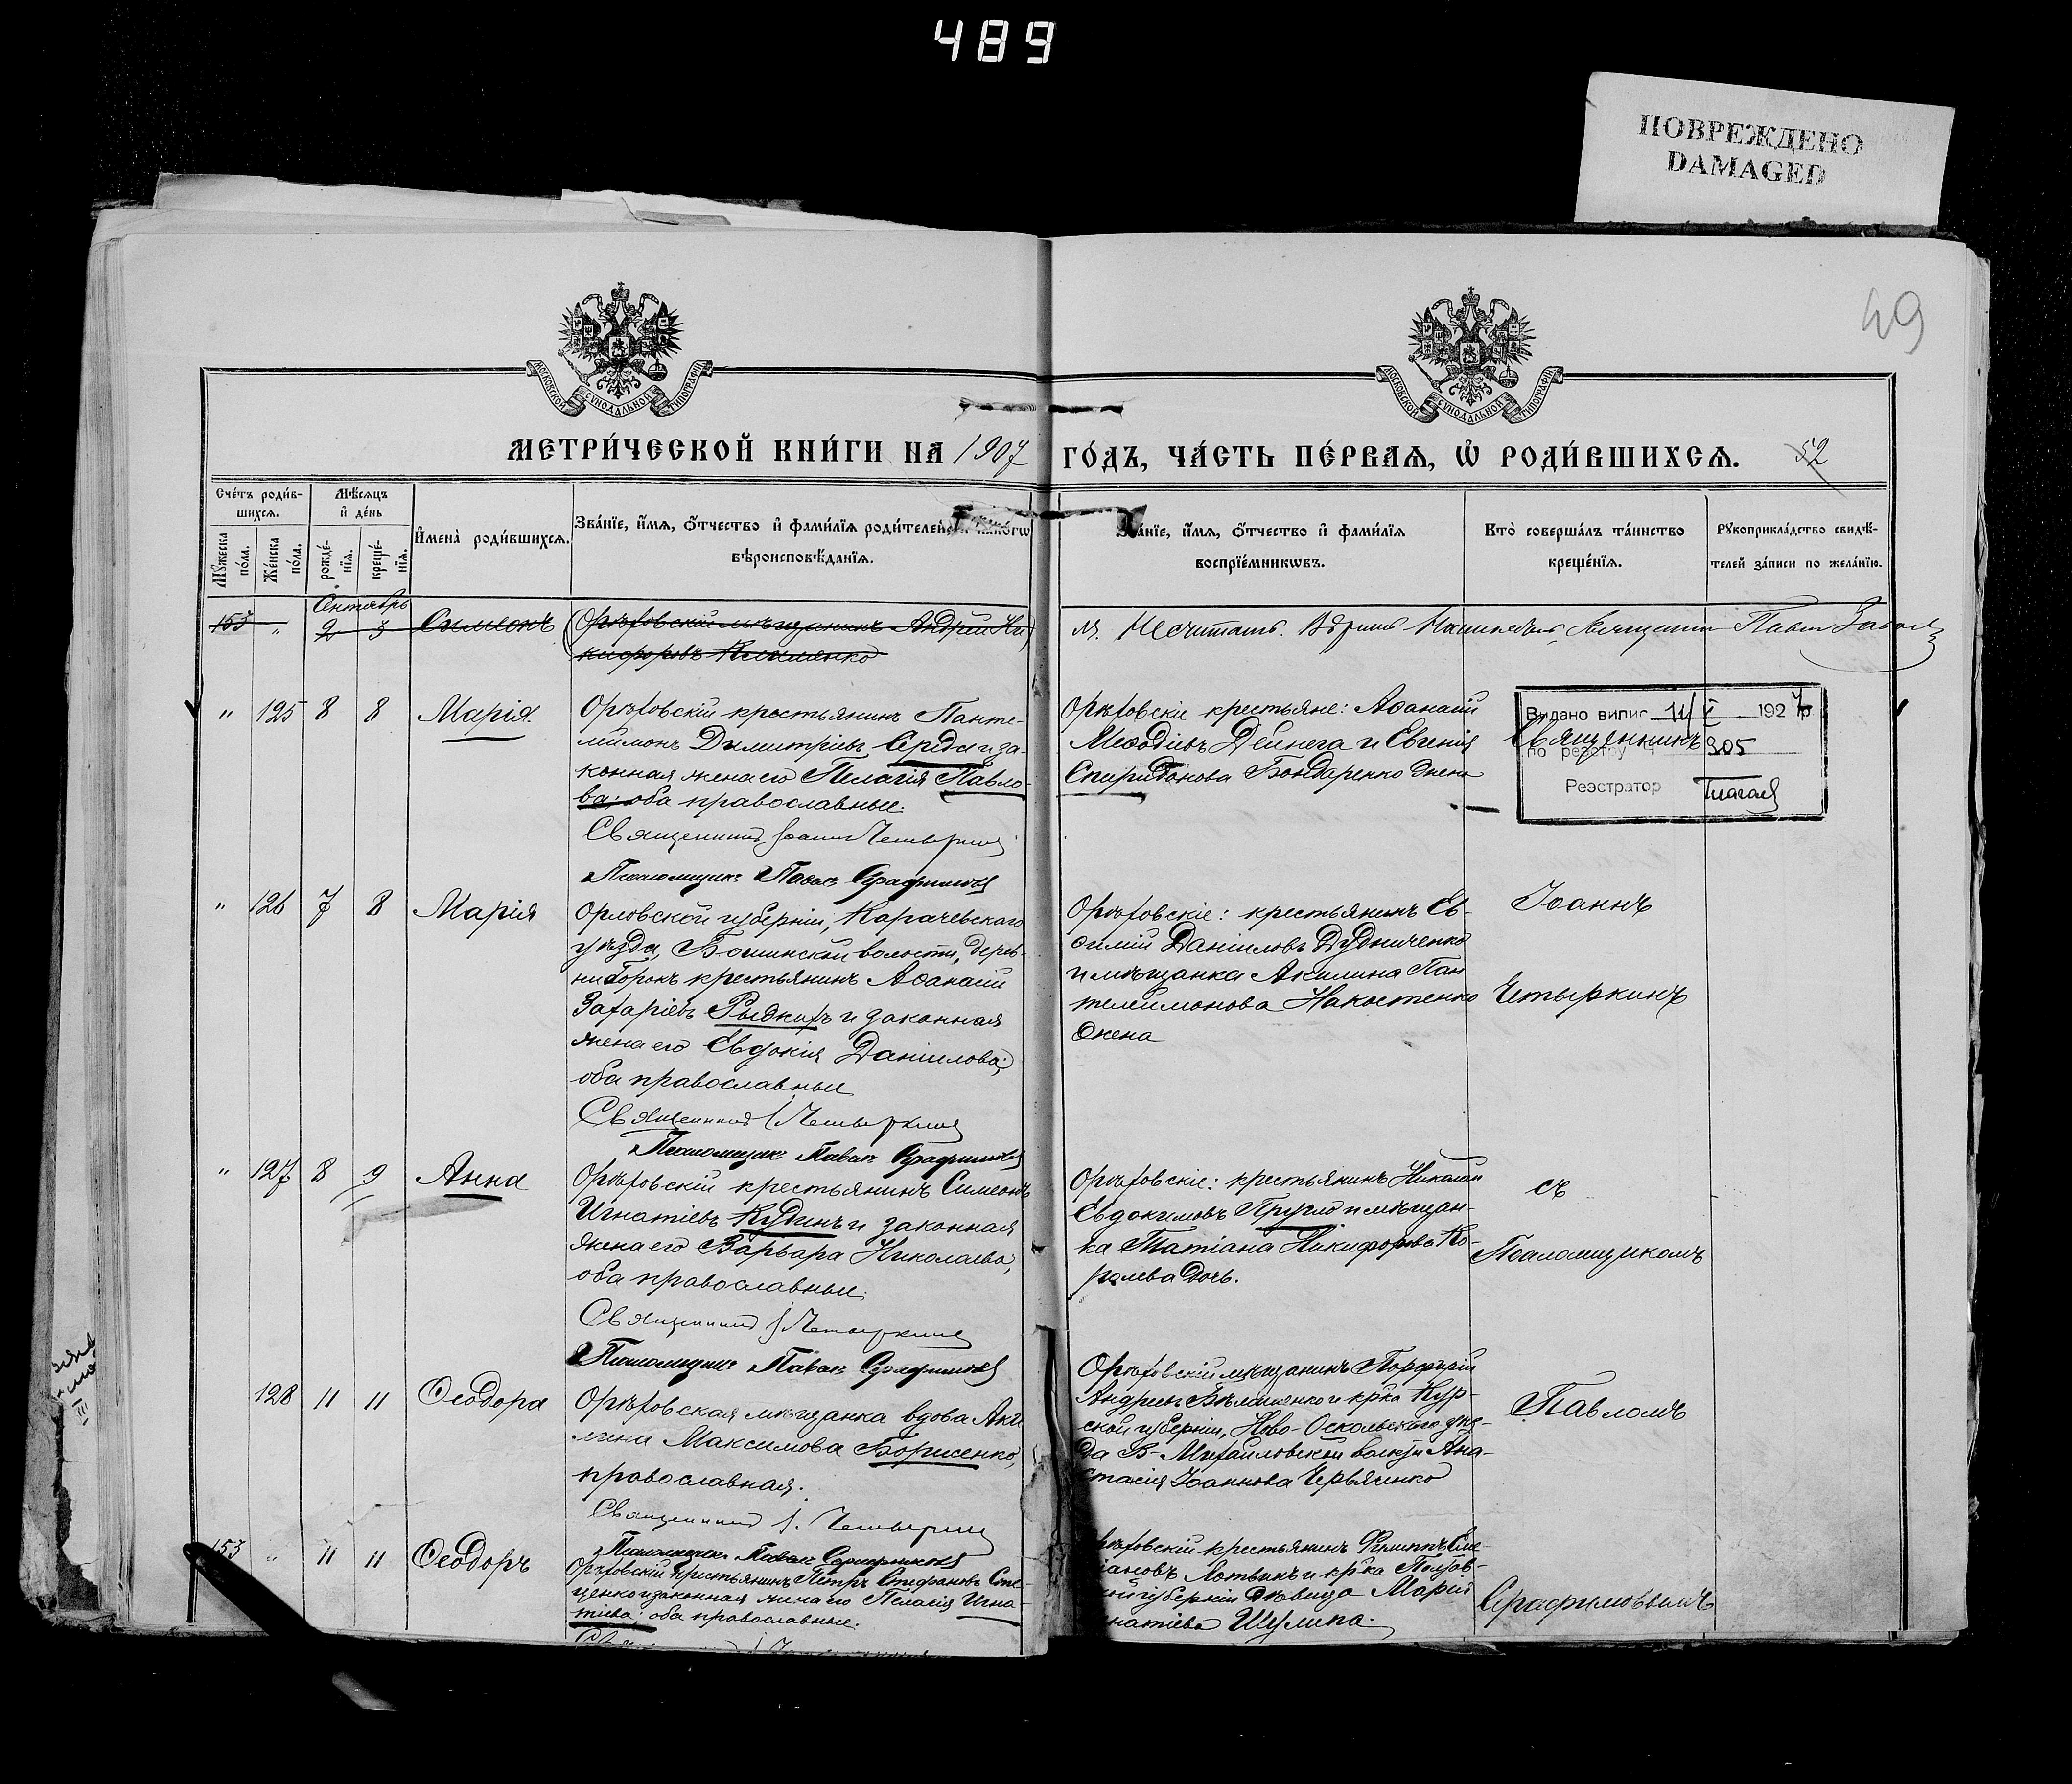 489
ПОВРЕЖДЕНО
DAMAGED
49
МОСКОВСКОЙ СѴНОДАЛЬНОЙ ТИПОГРАФІИ
МОСКОВСКОЙ СѴНОДАЛЬНОЙ ТИПОГРАФІИ
МЕТРИ́ЧЕСКОЙ КНИ́ГИ НА 1907 ГО́ДЪ, ЧА́СТЬ ПЕ́РВАѦ, Ѡ҆ РОДИ́ВШИХСѦ. 52
Сче́тъ роди́в-
шихсѧ.
Мѣ́сѧцъ
и҆ де́нь
Мꙋ́жеска по́ла.
Же́нска по́ла.
рожде́-
нїѧ.
креще́-
нїѧ.
И҆мена̀ роди́вшихсѧ.
Зва́нїе, и҆́мѧ, ѻ҆́тчество и҆ фами́лїѧ роди́телей
вѣроисповѣ́данїѧ.
Зва́нїе, и҆́мѧ, ѻ҆́тчество и҆ фами́лїѧ
воспрїе́мникѡвъ.
Кто̀ соверша́лъ та́инство
креще́нїѧ.
Рꙋкоприкла́дство свидѣ́-
телей за́писи по жела́нїю.
Сентябрь
153 " 2 3 Симеонъ
Орѣховскій мѣщанинъ Андрей Ни
кифоровъ
Не считать. Священникъ Павелъ
" 125 8 8 Марія.
Орѣховскій крестьянинъ Панте-
леимонъ Димитріевъ Середа и за-
конная жена его Пелагія Павло-
ва; оба православные.
Священникъ Іоаннъ Четыркинъ
Псаломщикъ Павелъ Серафимовъ
Орѣховскіе крестьяне: Аѳанасій
Меѳодіевъ Дейнега и Евгенія
Спиридонова Бондаренко жена
Видано випис 11/V 1927 р
по реєстру 305
Реєстратор
Священникъ
" 126 7 8 Марія
Орловской губерніи, Карачевскаго
уѣзда, Бошинской волости, дерев-
ни крестьянинъ Аѳанасій
Захаріевъ Рыдкихъ и законная
жена его Евдокія Даніилова;
оба православные
Священникъ І Четыркинъ
Псаломщикъ Павелъ Серафимовъ
Орѣховскіе: крестьянинъ Ев-
ѳимій Даніиловъ Дудниченко
и мѣщанка Акилина Пан
телеимонова Накостенко
жена
Іоаннъ
Четыркинъ
" 127 8 9 Анна
Орѣховскій крестьянинъ Симеонъ
Игнатіевъ Кудинъ и законная
жена его Варвара Николаева;
оба православные.
Священникъ І Четыркинъ
Псаломщикъ Павелъ Серафимовъ
Орѣховскіе: крестьянинъ Николай
Евдокимовъ Пругло и мѣщан-
ка Татіана Никифорова Ко-
ролева дочь.
съ
Псаломщикомъ
128 11 11 Ѳеодора
Орѣховская мѣщанка вдова Аки
лина Максимова Борисенко,
православная.
Священникъ І. Четыркинъ
Псаломщикъ Павелъ Серафимовъ
Орѣховскій мѣщанинъ Порфирій
Андреевъ и кр-ка Кур-
ской губерніи, Ново-Оскольскаго уѣз-
да В-Михайловской волости Ана-
стасія Іоаннова Червяченко
Павломъ
153 " 11 11 Ѳеодоръ
Орѣховскій крестьянинъ Петръ Стефановъ Сте-
ценко и законная жена его Пелагія Игна-
тіева; оба православные.
крестьянинъ Филиппъ
и кр-ка Полтав-
ской губерніи дѣвица Марія
Игнатіева Шулика.
Серафимовымъ